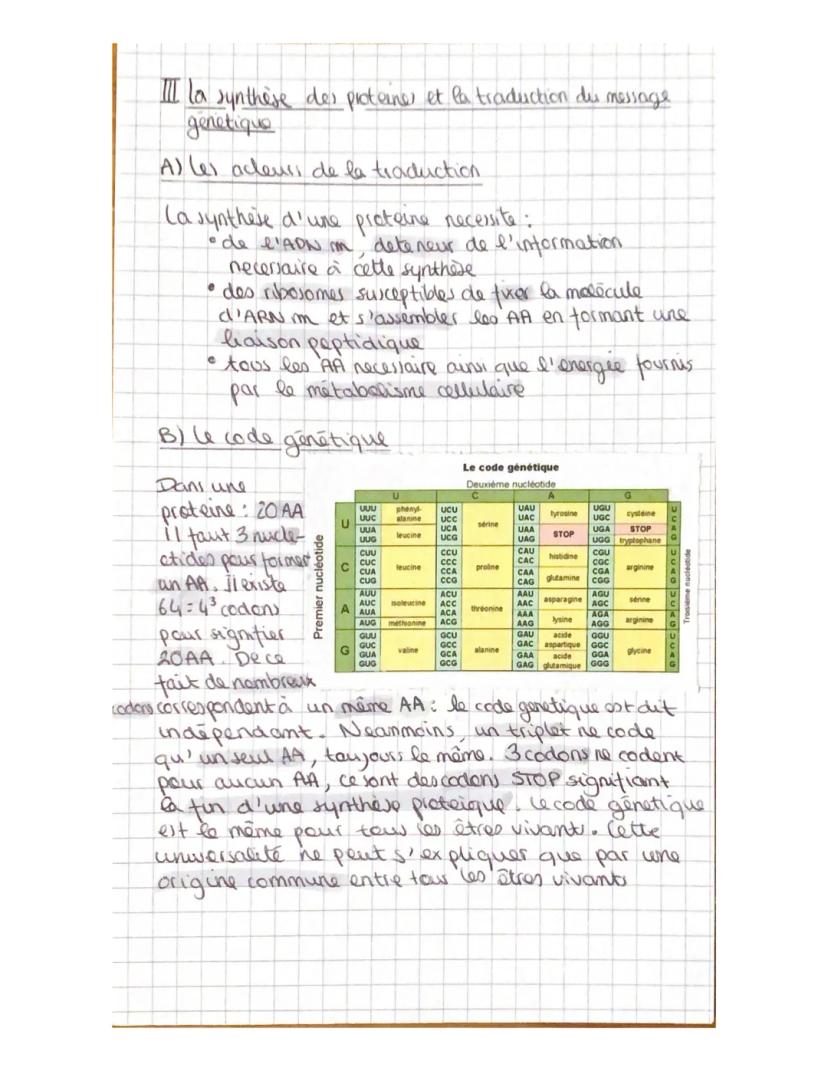 III la synthèse des proteines et la traduction du message
génétique
A) les acteurs de la traduction
La synthèse d'une proteine necessite :
• de l'ADN m, deteneur de l'information
necessaire à cette synthèse
• des ribosomes susceptibles de fixer la molécule
d'ARN m et s'assembler les AA en formant une
liaison peptidique
• tous les AA necessaire ainsi que l'energie fournis
par le métabolisme cellulaire
B) le code génétique
Le code génétique
Deuxième nucléotide
U C A G
Premier nucléotide
Troisième nucléotide
U
UUU phényl- UCU UAU UGU U
UUC alanine UCC UAC tyrosine UGC cystéine C
UUA UCA sérine UAA UGA STOP A
UUG leucine UCG UAG STOP UGG tryptophane G
C
CUU CCU CAU CGU U
CUC CCC CAC histidine CGC C
CUA leucine CCA proline CAA CGA arginine A
CUG CCG CAG glutamine CGG G
A
AUU ACU AAU AGU U
AUC isoleucine ACC AAC asparagine AGC sérine C
AUA ACA thréonine AAA AGA A
AUG méthionine ACG AAG lysine AGG arginine G
G
GUU GCU GAU acide GGU U
GUC GCC GAC aspartique GGC C
GUA valine GCA alanine GAA acide GGA glycine A
GUG GCG GAG glutamique GGG G
Dans une
proteine : 20 AA
Il faut 3 nucle-
otides pour former
un AA. Il existe
64 = 4³ codons
pour signifier
20 AA. De ce
fait de nombreux
codons correspondent à un même AA : le code genetique est dit
indépendant. Neanmoins, un triplet ne code
qu'un seul AA, toujours le même. 3 codons ne codent
pour aucun AA, ce sont des codons STOP signifiant
la fin d'une synthèse proteique. le code génétique
est le même pour tous les êtres vivants. Cette
universalité ne peut s'expliquer que par une
origine commune entre tous les êtres vivants